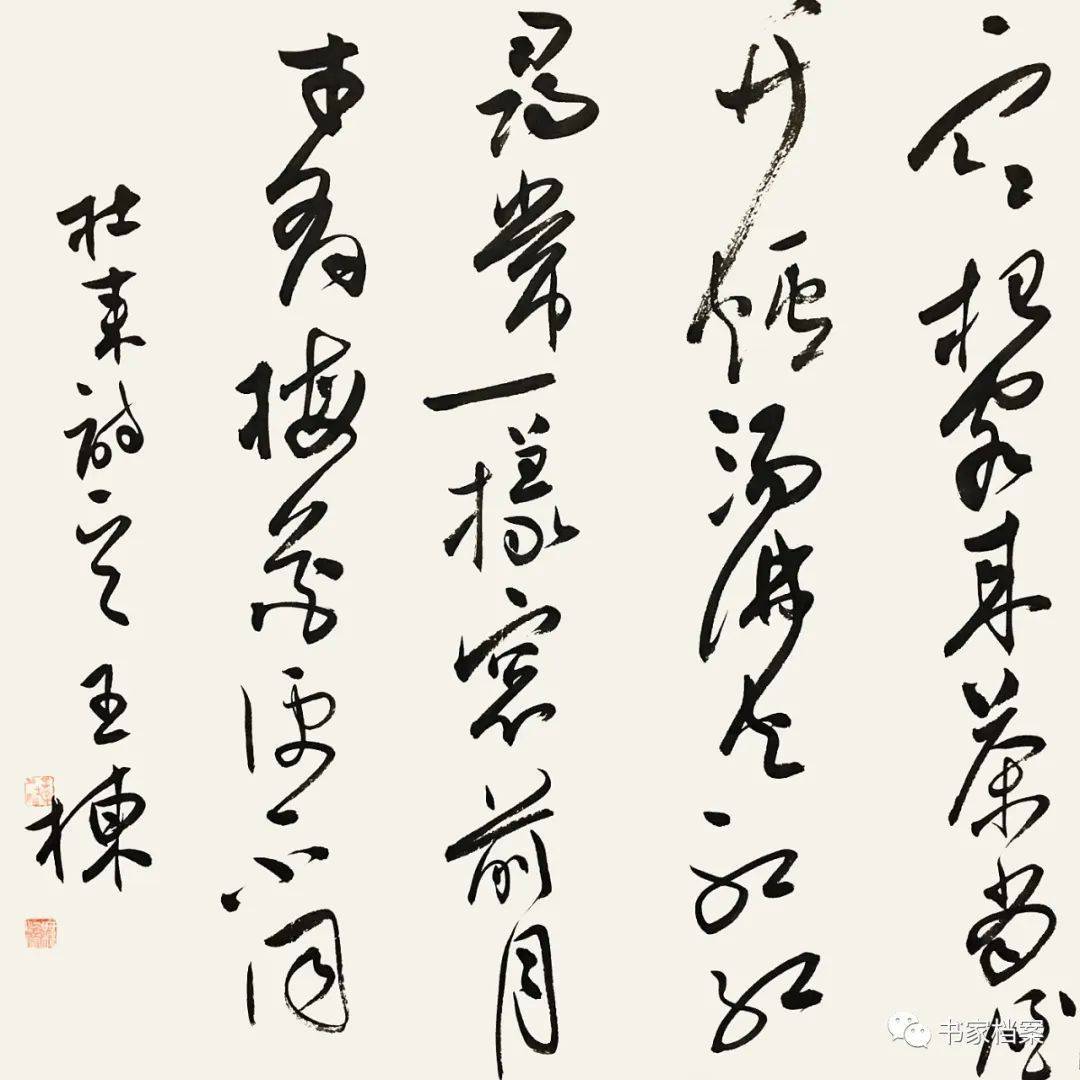 寒夜客來茶當酒
竹爐湯沸火初紅
尋常一樣窗前月
才有梅花便不同
杜耒詩 王棟
书家档案